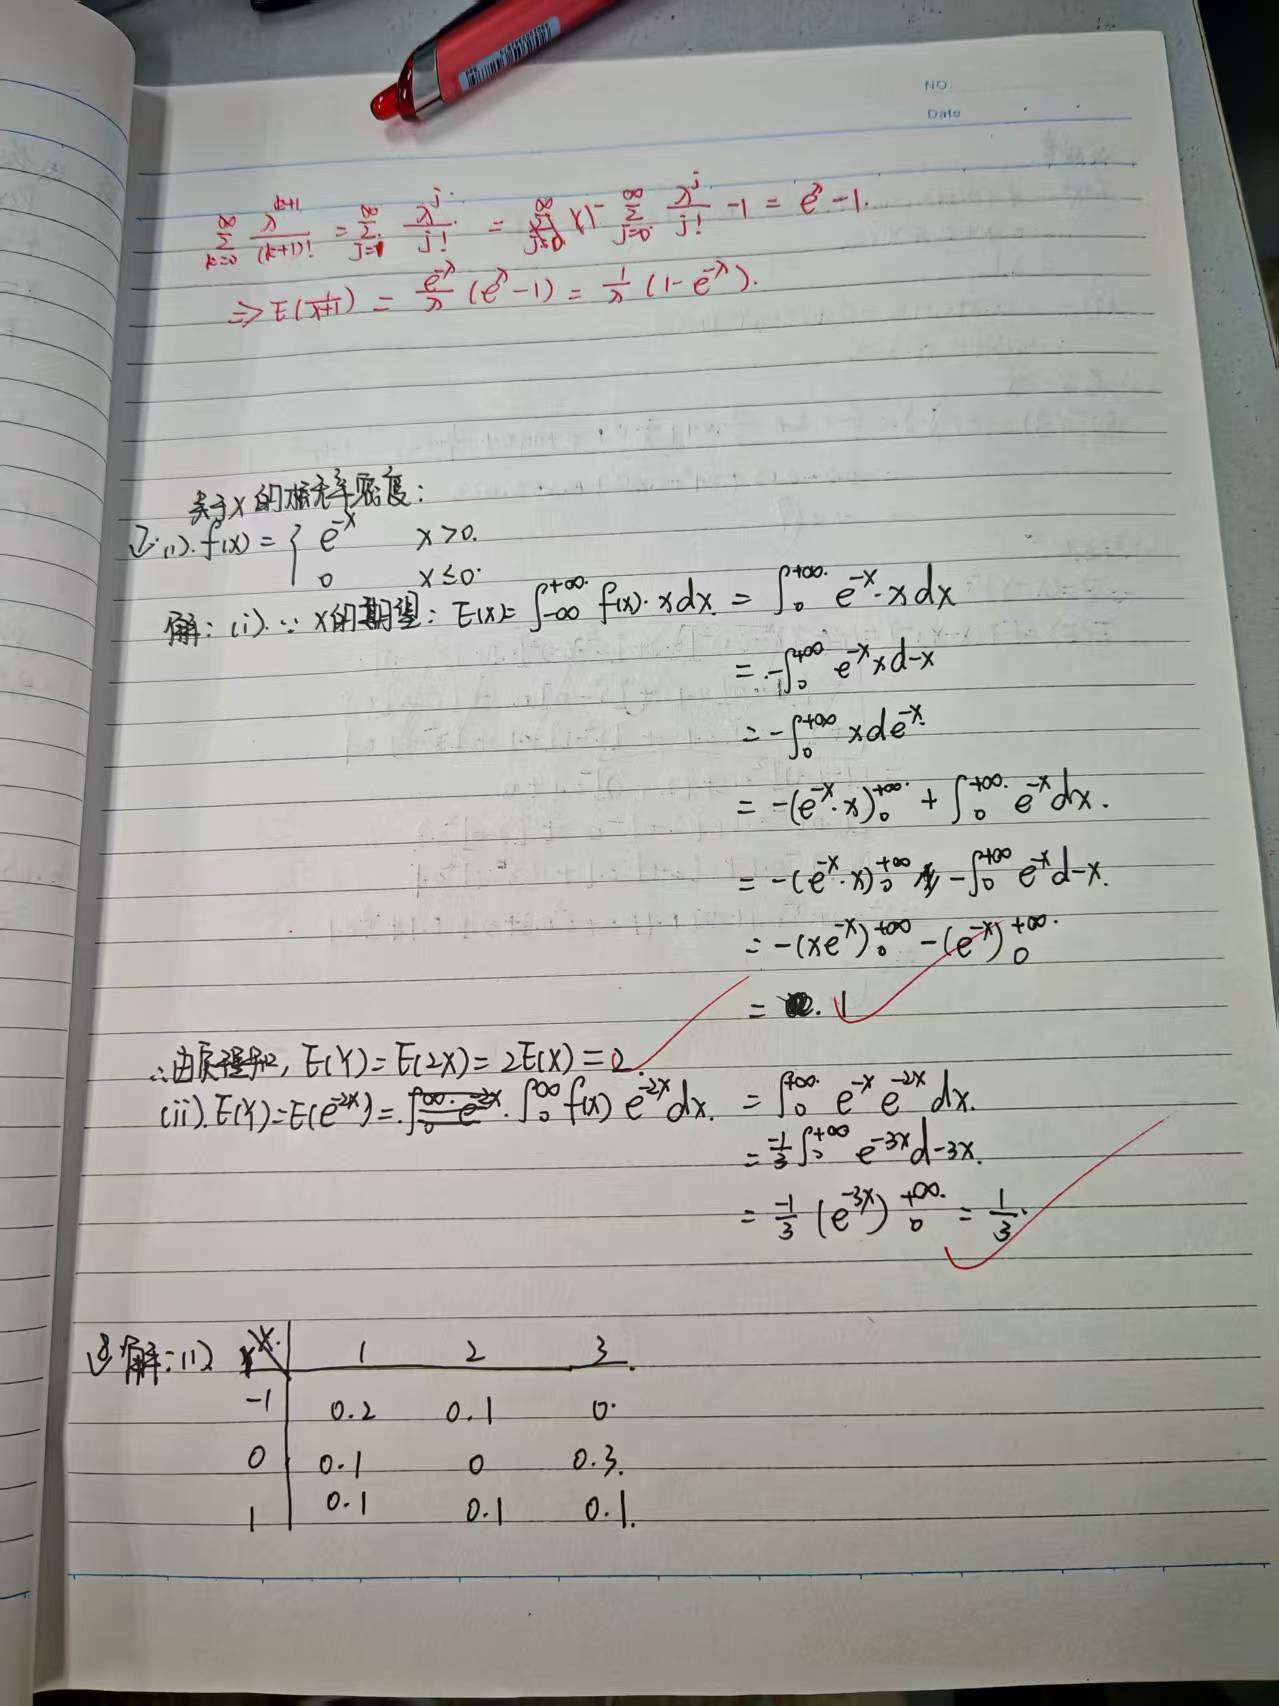 NO.
Date
∑_{k=0}^{∞} λ^{k+1}/(k+1)! = ∑_{j=1}^{∞} λ^j/j! = ∑_{j=0}^{∞} λ^j/j! -1 = e^λ -1.
⇒ E(1/(x+1)) = e^{-λ}/λ (e^λ -1) = 1/λ (1- e^{-λ}).
关于X的概率密度:
7.(1). f(x) = { e^{-x} x>0.
0 x≤0.
解: (i). ∵ X的期望: E(X)= ∫_{-∞}^{+∞} f(x)·x dx = ∫_0^{+∞} e^{-x}·x dx
= -∫_0^{+∞} e^{-x} x d-x
= -∫_0^{+∞} x de^{-x}
= -(e^{-x}·x)_0^{+∞} + ∫_0^{+∞} e^{-x} dx.
= -(e^{-x}·x)_0^{+∞} - ∫_0^{+∞} e^{-x} d-x.
= -(xe^{-x})_0^{+∞} - (e^{-x})_0^{+∞}
= 1
E(Y)=E(2X)=2E(X)=2.
(ii). E(Y)=E(e^{-2x})= ∫_0^∞ f(x) e^{-2x} dx. = ∫_0^{+∞} e^{-x} e^{-2x} dx.
= -1/3 ∫_0^{+∞} e^{-3x} d-3x.
= -1/3 (e^{-3x})_0^{+∞} = 1/3.
8 解: (1) Y X 1 2 3
-1 0.2 0.1 0.
0 0.1 0 0.3.
1 0.1 0.1 0.1.